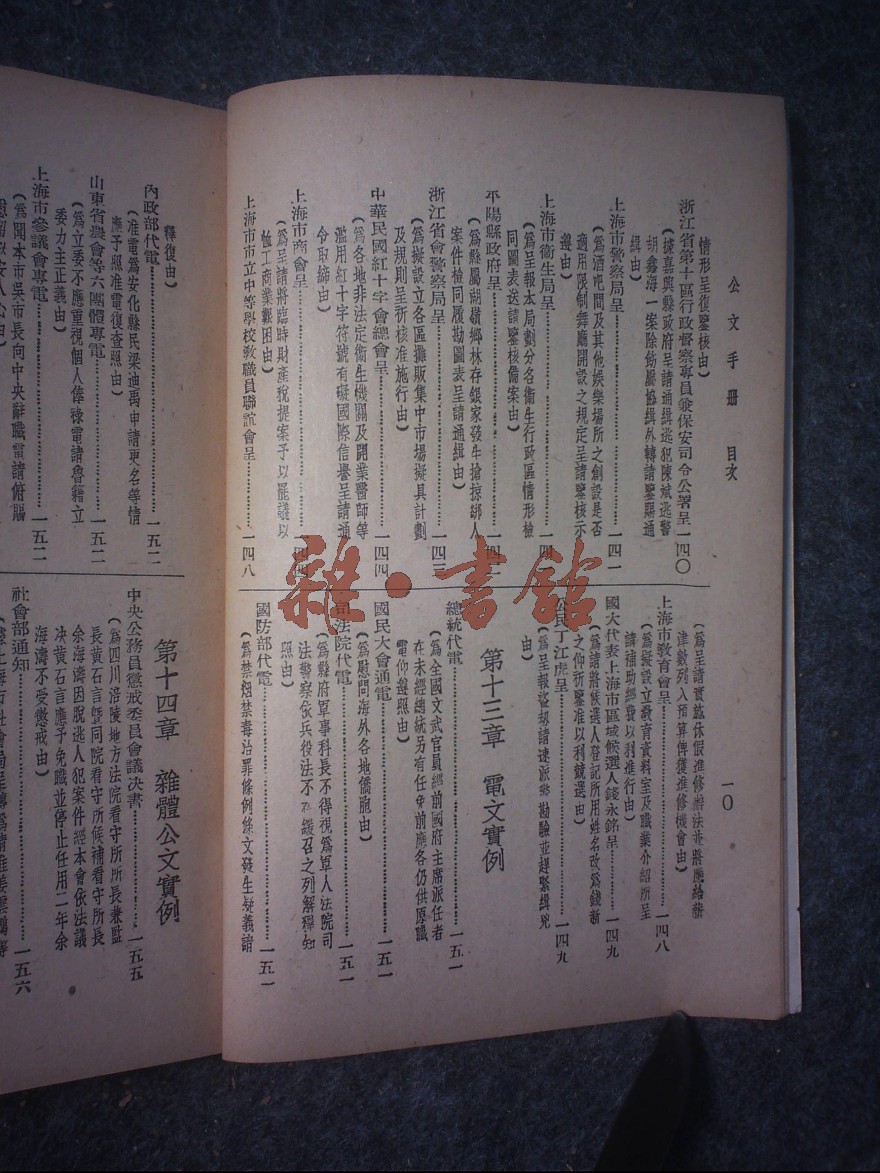 公文手冊 目次
一〇
情形呈復鑒核由)
浙江省第十區行政督察專員兼保安司令公署呈…一四〇
(據嘉興縣政府呈請通緝逃犯陳斌逃警
胡鑫海一案除飭屬協緝外轉請鑒賜通
緝由)
上海市警察局呈…一四一
(爲酒吧間及其他娛樂場所之創設是否
適用限制舞廳開設之規定呈請鑒核示
遵由)
上海市衛生局呈…一四
(爲呈報本局劃分各衛生行政區情形檢
同圖表送請鑒核備案由)
平陽縣政府呈…一四
(爲縣屬湖嶺鄉林存銀家發生搶掠綁人
案件檢同履勘圖表呈請通緝由)
浙江省會警察局呈…一四三
(爲擬設立各區攤販集中市場擬具計劃
及規則呈祈核准施行由)
中華民國紅十字會總會呈…一四四
(爲各地非法定衛生機關及開業醫師等
濫用紅十字符號有礙國際信譽呈請通
令取締由)
上海市商會呈…一四
(爲呈請將臨時財產稅提案予以罷議以
恤工商業艱困由)
上海市市立中等學校教職員聯誼會呈…一四八
(爲呈請實施休假進修辦法並將應給薪
津數列入預算俾獲進修機會由)
上海市教育會呈…一四八
(爲擬設立教育資料室及職業介紹所呈
請補助經費以利進行由)
國大代表上海市區域候選人錢永銘呈…一四九
(爲請將候選人登記所用姓名改爲錢新
之仰祈鑒准以利競選由)
公民丁江虎呈…一四九
(爲呈報盜刧請速派警勘驗並趕緊緝兇
由)
第十三章 電文實例
總統代電…一五一
(爲全國文武官員經前國府主席派任者
在未經總統另有任免前應各仍供原職
電仰遵照由)
國民大會通電…一五一
(爲慰問海外各地僑胞由)
司法院代電…一五一
(爲縣府軍事科長不得視爲軍人法院司
法警察依兵役法不在緩召之列解釋知
照由)
國防部代電…一五一
(爲禁烟禁毒治罪條例條文發生疑義請
釋復由)
內政部代電…一五二
(准電爲安化縣民梁迪禹申請更名等情
應予照准電復查照由)
山東省農會等六團體專電…一五二
(爲立委不應重視個人俸祿電請魯籍立
委力主正義由)
上海市參議會專電…一五二
(爲聞本市吳市長向中央辭職電請俯賜
第十四章 雜體公文實例
中央公務員懲戒委員會議決書…一五五
(爲四川涪陵地方法院看守所所長兼監
長黃石言暨同院看守所候補看守所長
余海濤因脫逃人犯案件經本會依法議
决黃石言應予免職並停止任用二年余
海濤不受懲戒由)
社會部通知…一五六
雜·書館